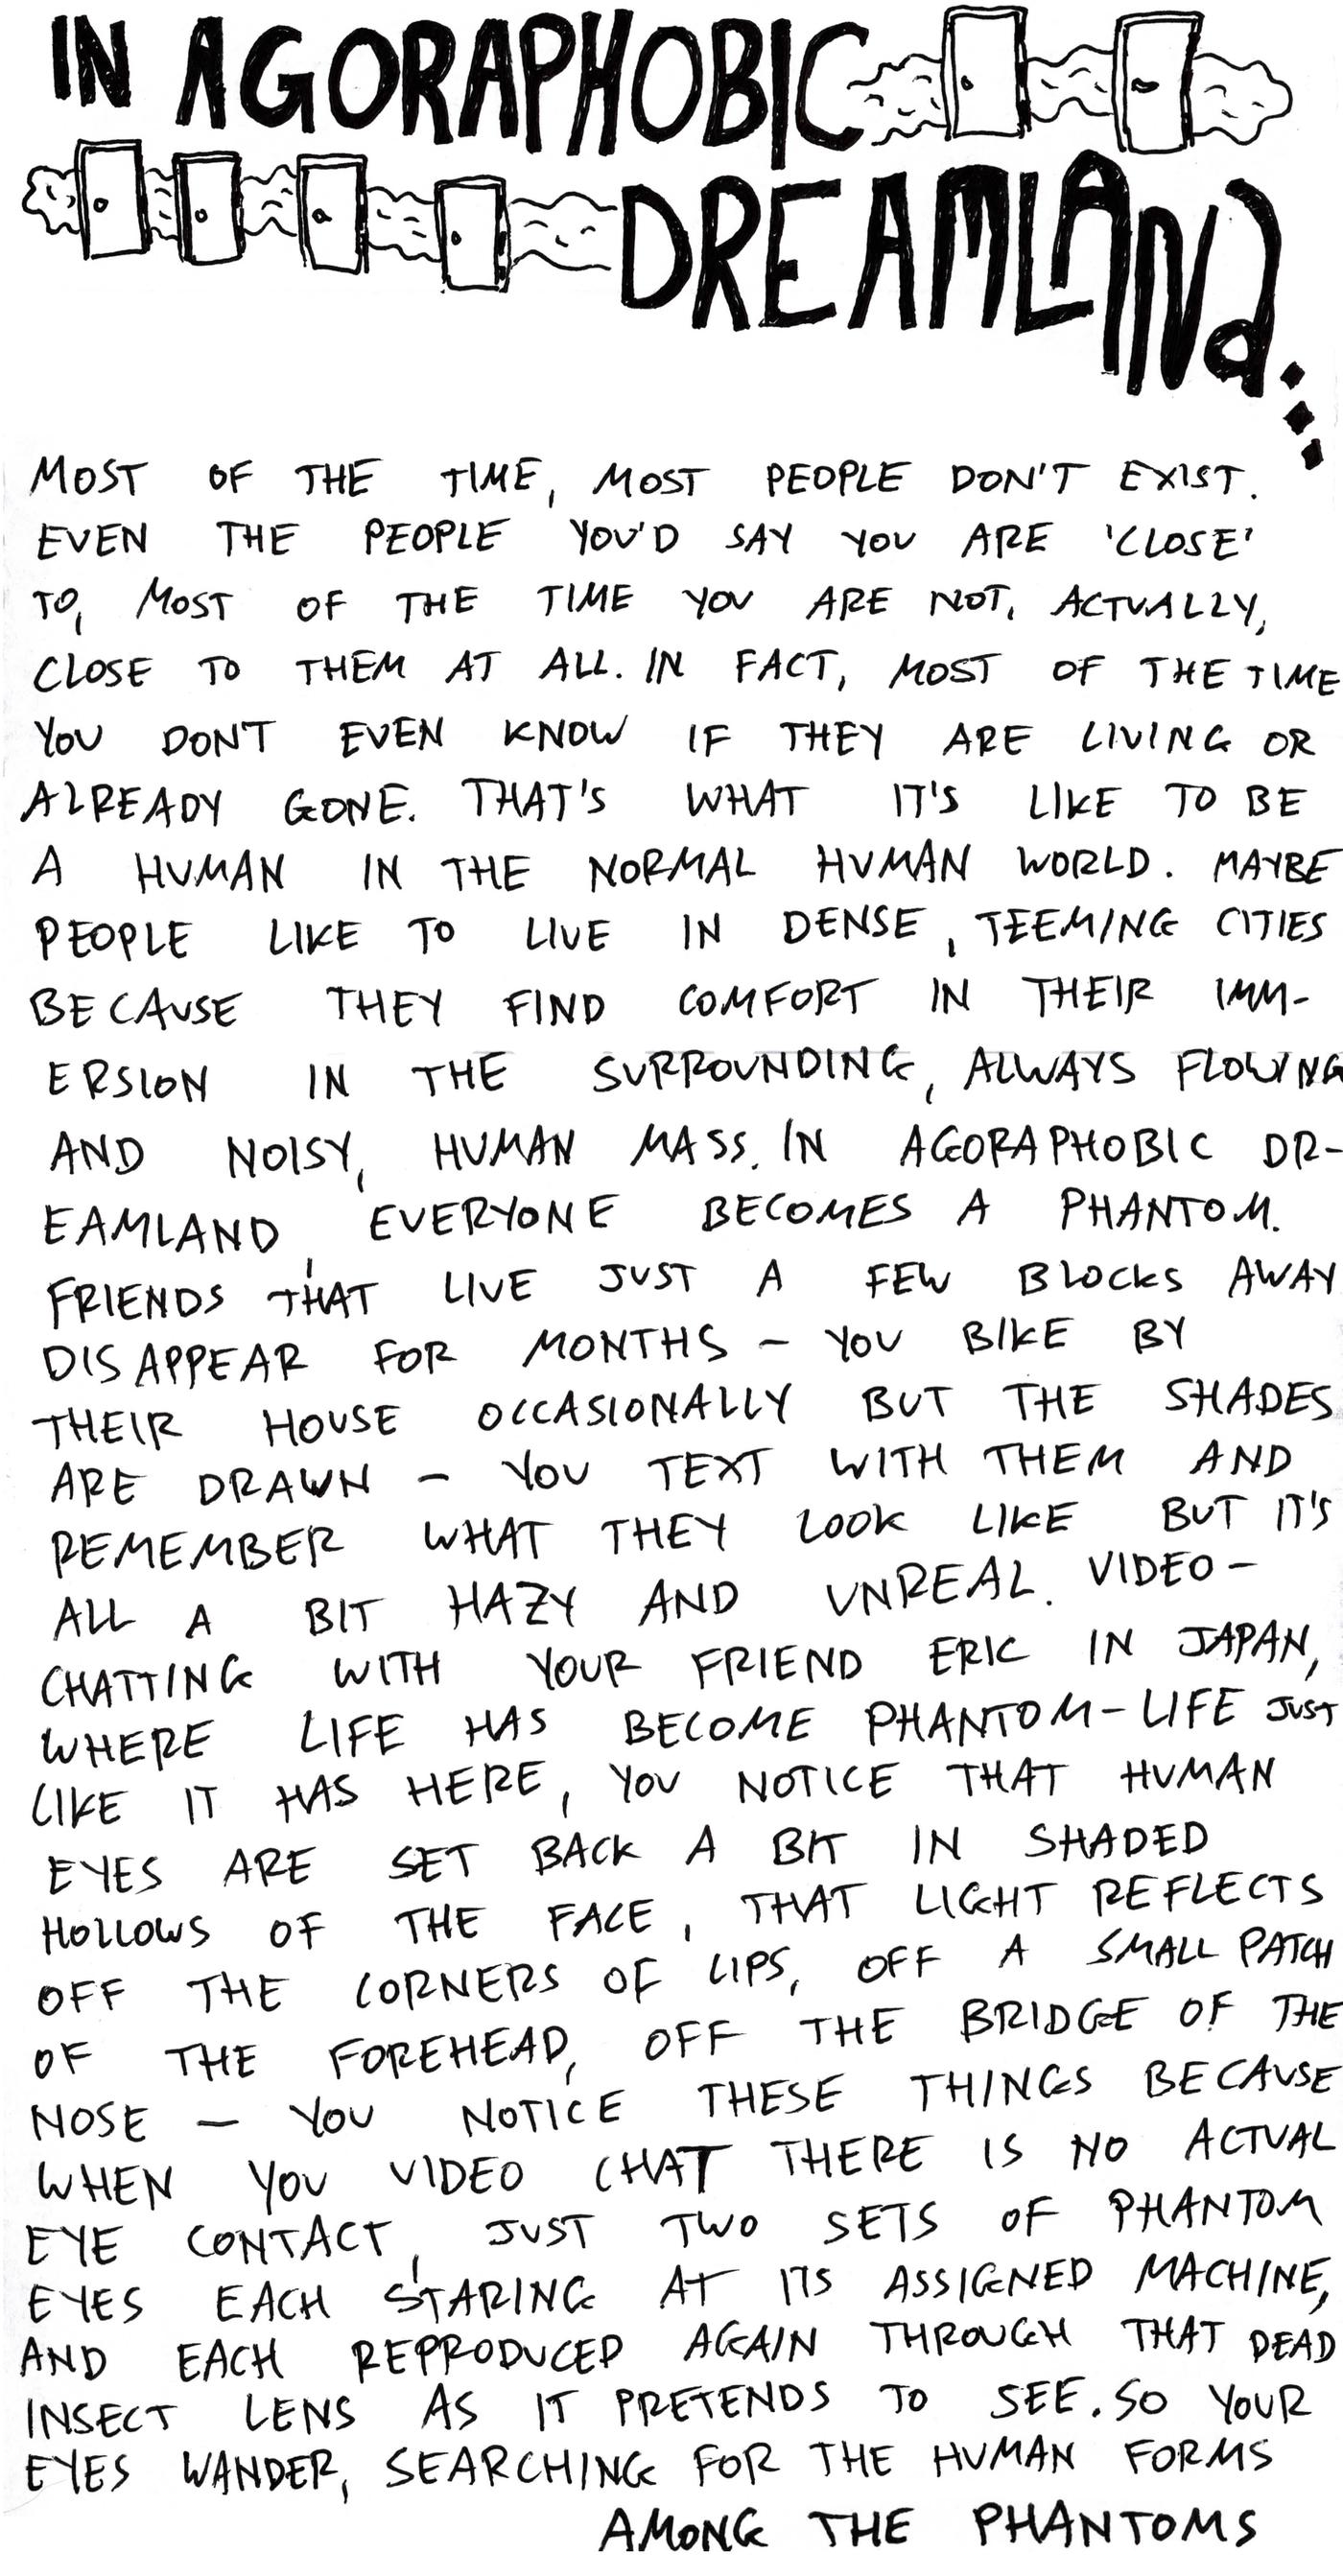 IN AGORAPHOBIC
DREAMLANd...
MOST OF THE TIME, MOST PEOPLE DON'T EXIST.
EVEN THE PEOPLE YOU'D SAY YOU ARE 'CLOSE'
TO, MOST OF THE TIME YOU ARE NOT, ACTUALLY,
CLOSE TO THEM AT ALL. IN FACT, MOST OF THE TIME
YOU DON'T EVEN KNOW IF THEY ARE LIVING OR
ALREADY GONE. THAT'S WHAT IT'S LIKE TO BE
A HUMAN IN THE NORMAL HUMAN WORLD. MAYBE
PEOPLE LIKE TO LIVE IN DENSE, TEEMING CITIES
BECAUSE THEY FIND COMFORT IN THEIR IMM-
ERSION IN THE SURROUNDING, ALWAYS FLOWING
AND NOISY, HUMAN MASS. IN AGORAPHOBIC DR-
EAMLAND, EVERYONE BECOMES A PHANTOM.
FRIENDS THAT LIVE JUST A FEW BLOCKS AWAY
DISAPPEAR FOR MONTHS – YOU BIKE BY
THEIR HOUSE OCCASIONALLY BUT THE SHADES
ARE DRAWN – YOU TEXT WITH THEM AND
REMEMBER WHAT THEY LOOK LIKE BUT IT'S
ALL A BIT HAZY AND UNREAL. VIDEO-
CHATTING WITH YOUR FRIEND ERIC IN JAPAN,
WHERE LIFE HAS BECOME PHANTOM-LIFE JUST
LIKE IT HAS HERE, YOU NOTICE THAT HUMAN
EYES ARE SET BACK A BIT IN SHADED
HOLLOWS OF THE FACE, THAT LIGHT REFLECTS
OFF THE CORNERS OF LIPS, OFF A SMALL PATCH
OF THE FOREHEAD, OFF THE BRIDGE OF THE
NOSE – YOU NOTICE THESE THINGS BECAUSE
WHEN YOU VIDEO CHAT THERE IS NO ACTUAL
EYE CONTACT, JUST TWO SETS OF PHANTOM
EYES EACH STARING AT ITS ASSIGNED MACHINE,
AND EACH REPRODUCED AGAIN THROUGH THAT DEAD
INSECT LENS AS IT PRETENDS TO SEE. SO YOUR
EYES WANDER, SEARCHING FOR THE HUMAN FORMS
AMONG THE PHANTOMS